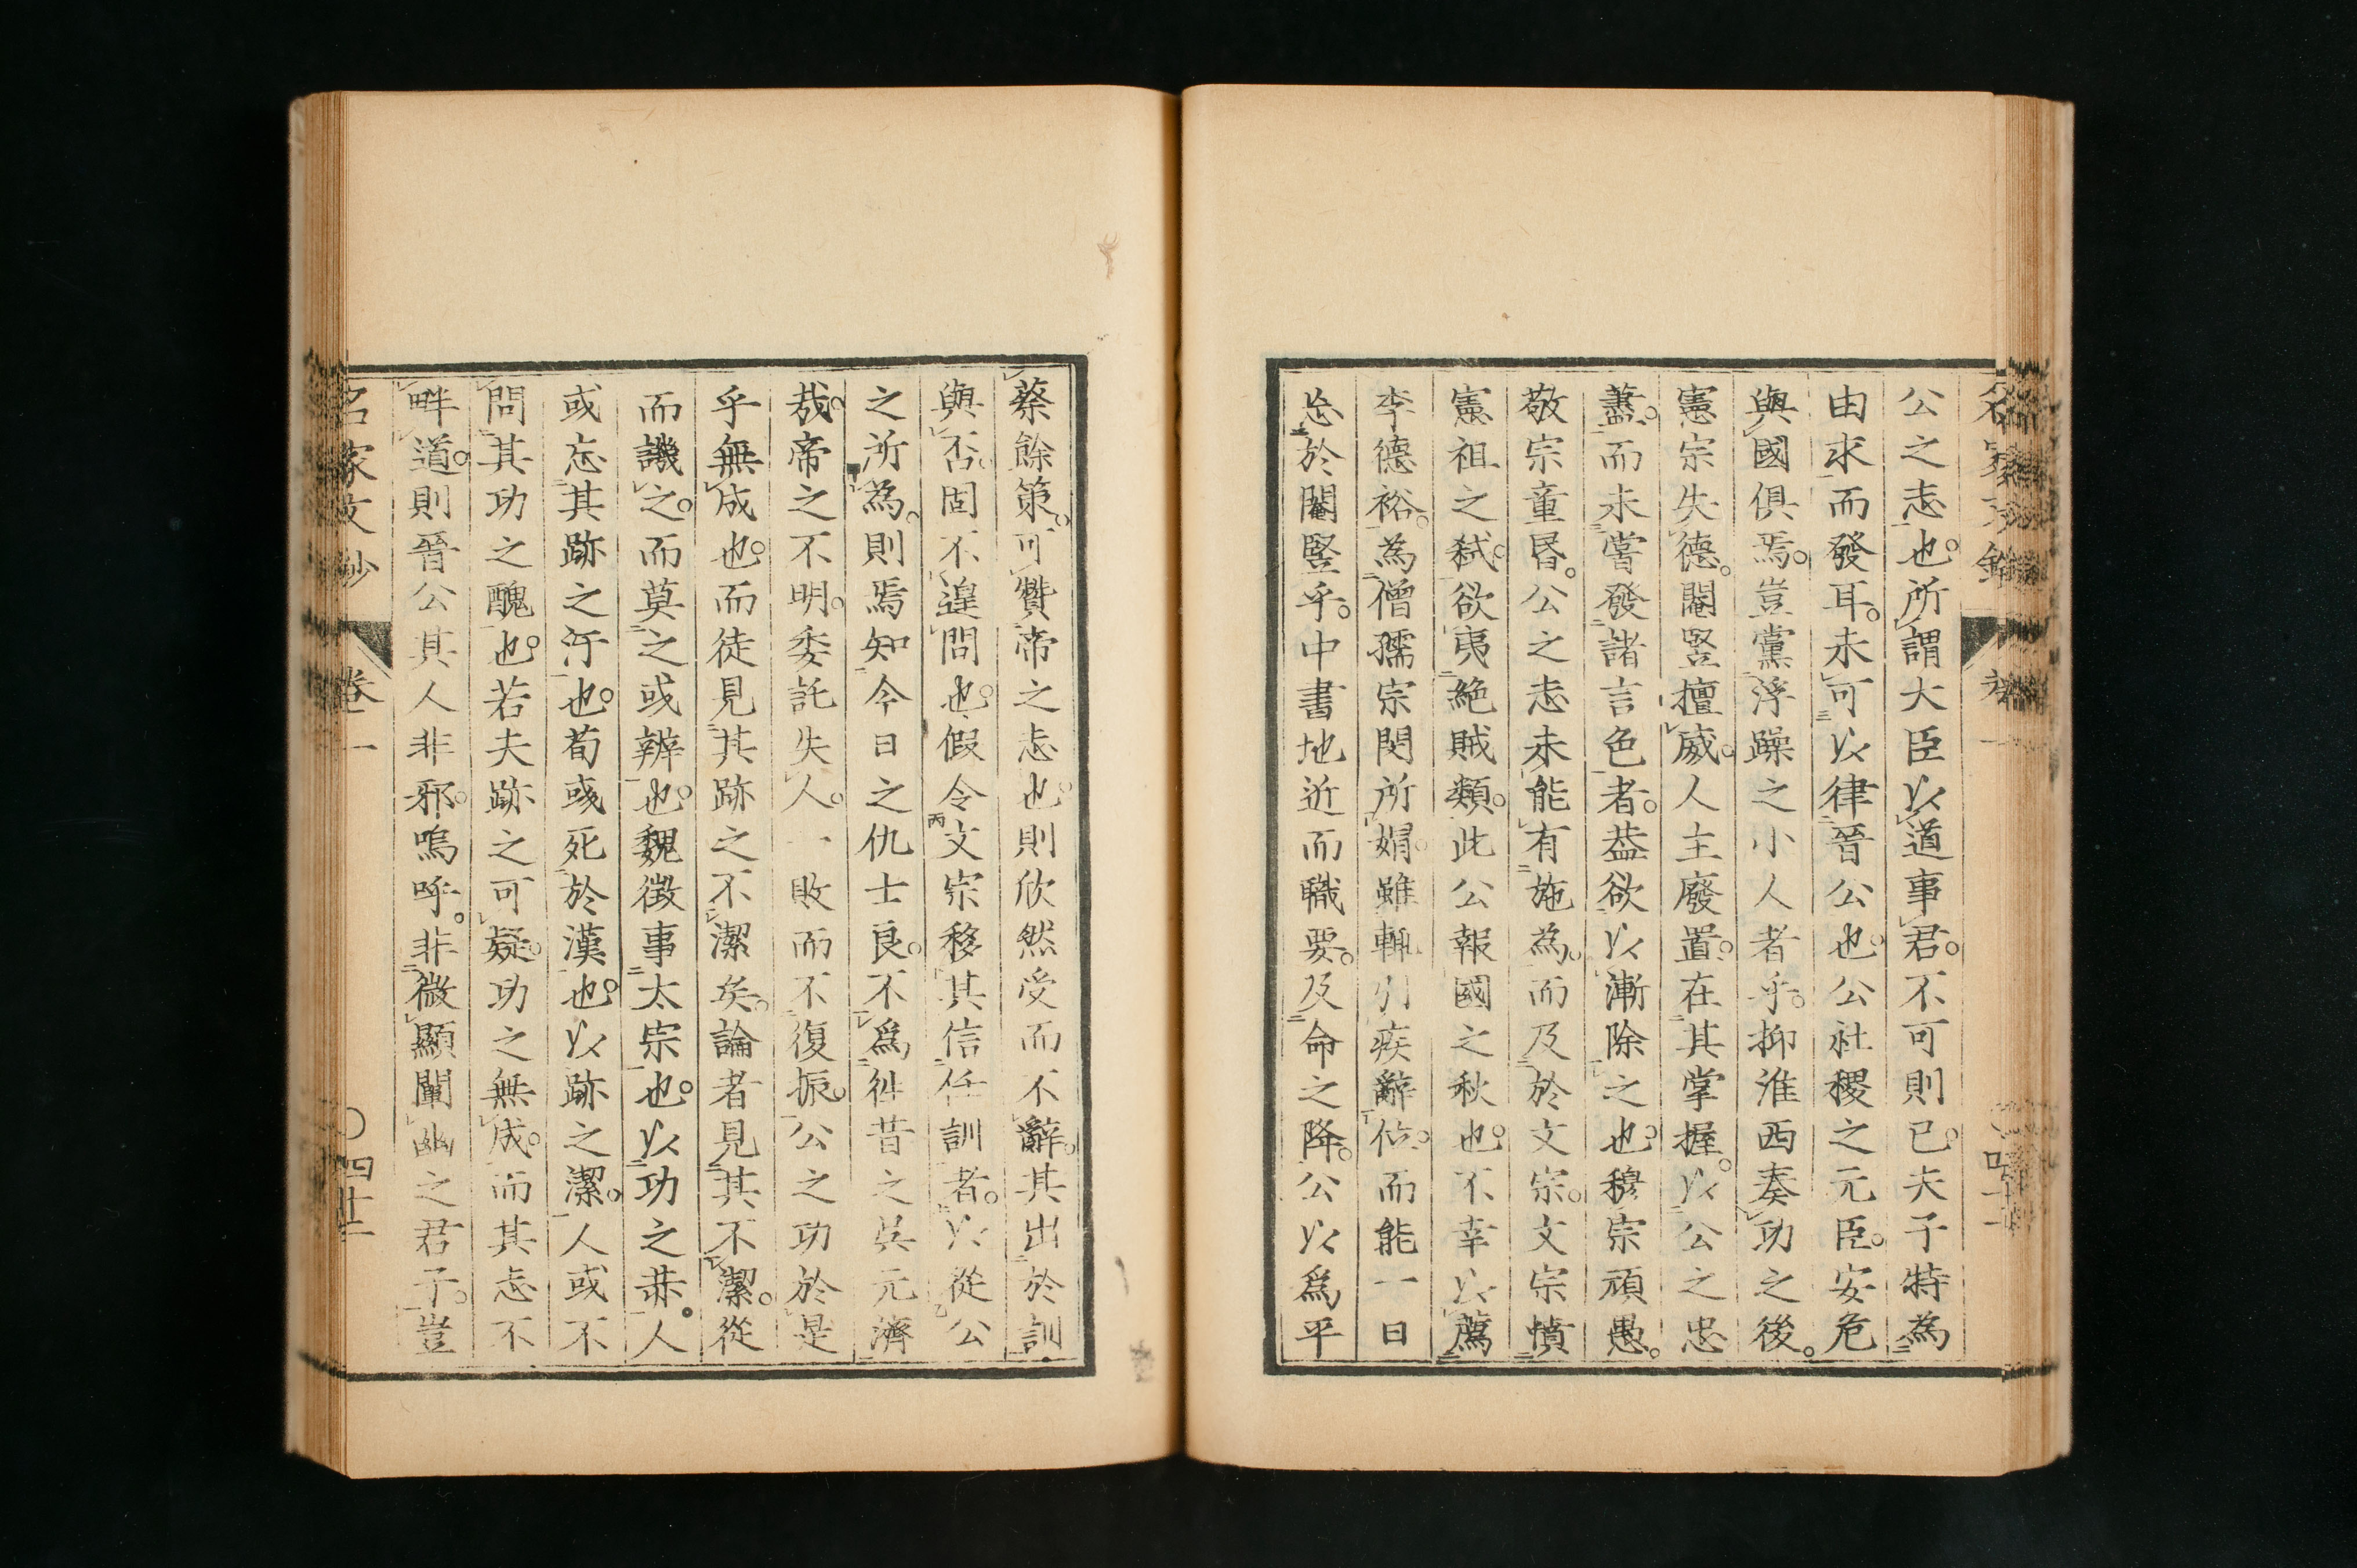 公之志也所謂大臣以道事君不可則已夫子特為
由求而發耳未可以律晉公也公社稷之元臣安危
與國俱焉豈黨浮躁之小人者乎抑淮西奏功之後
憲宗失德閹豎擅威人主廢置在其掌握以公之忠
藎而未嘗發諸言色者蓋欲以漸除之也穆宗頑愚
敬宗童昏公之志未能有施為而及於文宗文宗憤
憲祖之弑欲夷絕賊類此公報國之秋也不幸以薦
李德裕為僧孺宗閔所媢雖輒引疾辭位而能一日
忘於閹豎乎中書地近而職要及命之降公以爲平
蔡餘策可贊帝之志也則欣然受而不辭其出於訓
與否固不遑問也假令文宗移其信任訓者以從公
之所為則焉知今日之仇士良不爲徃昔之吳元濟
哉帝之不明委託失人一敗而不復振公之功於是
乎無成也而徒見其跡之不潔矣論者見其不潔從
而譏之而莫之或辨也魏徵事太宗也以功之恭人
或忘其跡之汙也荀彧死於漢也以跡之潔人或不
問其功之醜也若夫跡之可疑功之無成而其志不
畔道則晉公其人非邪嗚呼非微顯闡幽之君子豈
名家文鈔 卷一 〇四十二